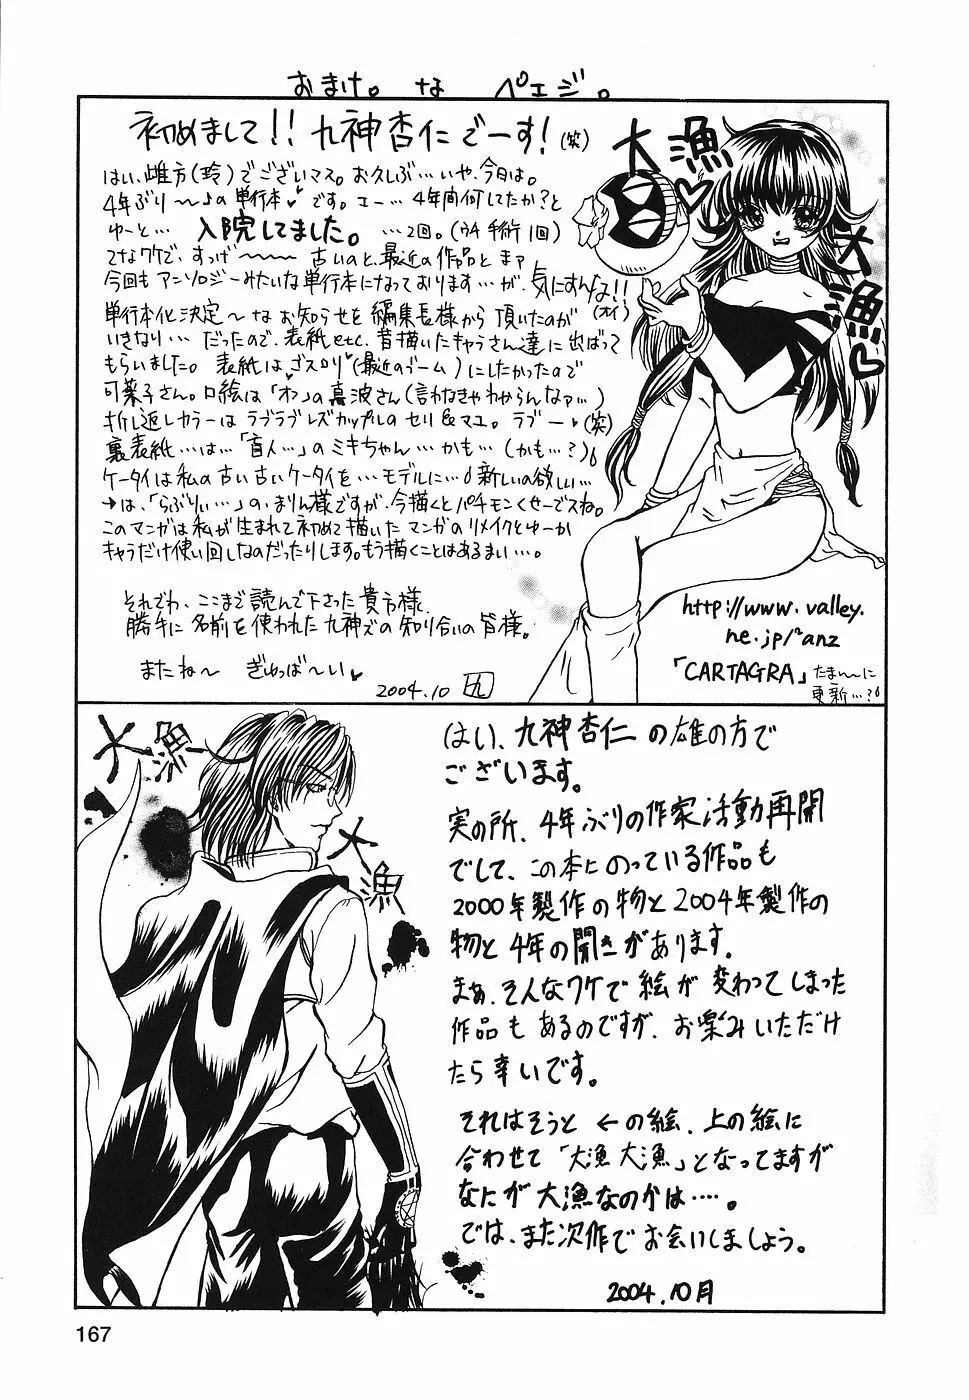 おまけ。な ペェジ。
初めまして!!九神杏仁でーす!(笑)
はい、雌方(玲)でございマス。お久しぶ…いや、今日は。
4年ぶり〜♪の単行本♥です。エー…4年間何してたか?と
ゆーと… 入院してました。 …2回。(ウチ手術1回)
てなワケで、すっげ〜〜〜古いのと、最近の作品とまァ
今回もアンソロジーみたいな単行本になっております…が、気にすんな!!
(オイ)
単行本化決定〜なお知らせを編集長様から頂いたのが
いきなり…だったので、表紙etc.昔描いたキャラさん達に出ばって
もらいました。表紙はゴスロリ♥(最近のブーム)にしたかったので
可菜子さん。口絵は「オン」の真波さん(言わなきゃわからんなァ…)
折し返しカラーはラブラブレズカップルのセリ&マユ。ラブー♥(笑)
裏表紙…は…「盲人…」のミキちゃん…かも…(かも…?)
ケータイは私の古い古いケータイを…モデルに…新しいの欲しい…
→は、「らぶりぃ…」の、まりん様ですが、今描くとパチモンくせーでスね。
このマンガは私が生まれて初めて描いたマンガのリメイクとゆーか
キャラだけ使い回しなのだったりします。もう描くことはあるまい…。
それでわ、ここまで読んで下さった貴方様、
勝手に名前を使われた九神ズの知り合いの皆様。
またね〜 ぎゅっば〜い♥
2004.10 九
大漁♥
大漁♥
http://www.valley.
ne.jp/~anz
「CARTAGRA」たま〜〜に
更新…?
大漁
大漁
はい、九神杏仁の雄の方で
ございます。
実の所、4年ぶりの作家活動再開
でして、この本にのっている作品も
2000年製作の物と2004年製作の
物と4年の開きがあります。
まぁ、そんなワケで絵が変わってしまった
作品もあるのですが、お楽みいただけ
たら幸いです。
それはそうと ←の絵、上の絵に
合わせて「大漁大漁」となってますが
なにが大漁なのかは….。
では、また次作でお会いしましょう。
2004.10月
167